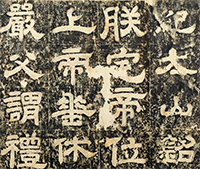 紀太山銘
朕宅帝位
上帝垂休
嚴父謂禮